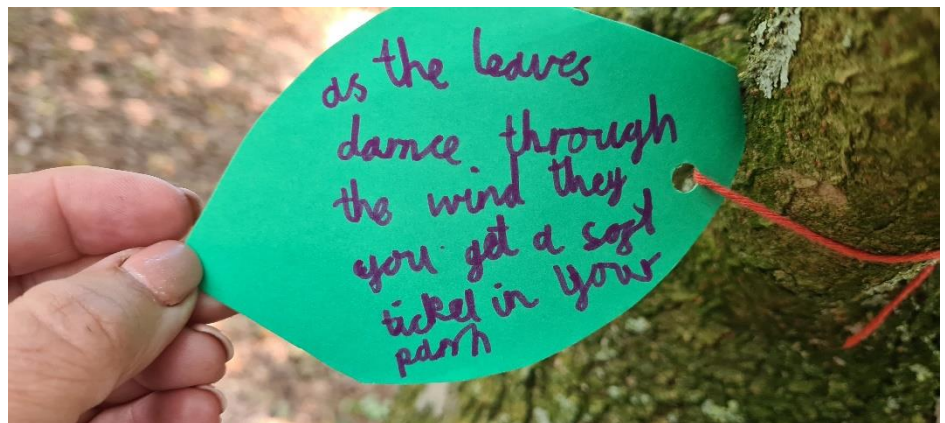 as the leaves
damce through
the wind they
you get a soft
tickel in your
parmh